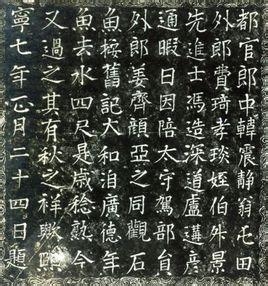 都官郎中韓震静翁屯田
外郎費琦孝琰姪伯升景
先進士馮造深道盧遘彦
通暇日因陪太守駕部員
外郎姜齊顔亞之同觀石
魚按舊記大和洎廣德年
魚去水四尺是歳稔熟今
又過之其有秋之祥歟熙
寧七年正月二十四日題